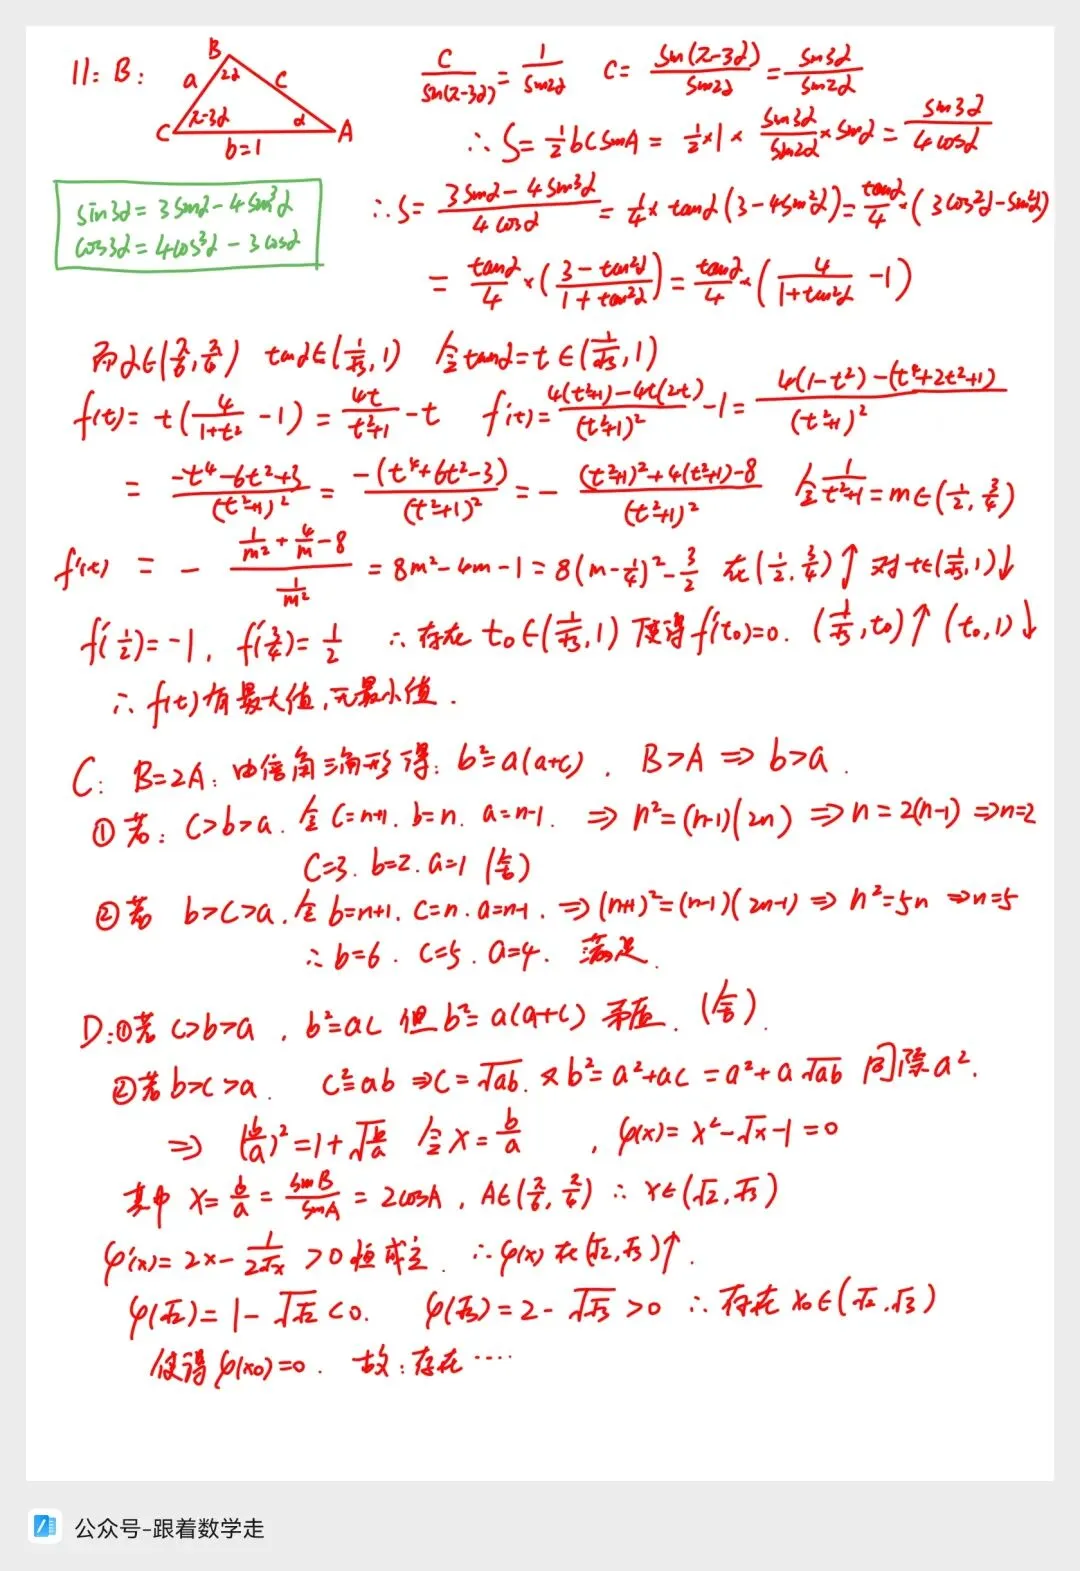 11: B:
B
a 2α c
C π-3α α A
b=1
c/sin(π-3α) = 1/sin2α c= sin(π-3α)/sin2α = sin3α/sin2α
∴ S= 1/2 bcsinA = 1/2 × 1 × sin3α/sin2α × sinα = sin3α/4cosα
sin3α = 3sinα - 4sin³α
cos3α = 4cos³α - 3cosα
∴ S= (3sinα - 4sin³α)/4cosα = 1/4 × tanα (3-4sin²α) = tanα/4 × (3cos²α - sin²α)
= tanα/4 × ((3-tan²α)/(1+tan²α)) = tanα/4 × (4/(1+tan²α) -1)
而α∈(π/6, π/4) tanα∈(1/√3, 1) 令tanα=t∈(1/√3, 1)
f(t)= t(4/(1+t²) -1) = 4t/(t²+1) - t f'(t)= (4(t²+1)-4t(2t))/(t²+1)² -1 = (4(1-t²)-(t⁴+2t²+1))/(t²+1)²
= (-t⁴-6t²+3)/(t²+1)² = -(t⁴+6t²-3)/(t²+1)² = - ((t²+1)²+4(t²+1)-8)/(t²+1)² 令 1/(t²+1) = m∈(1/2, 3/4)
f'(t) = - (1/m² + 4/m - 8)/(1/m²) = 8m²-4m-1 = 8(m-1/4)²-3/2 在(1/2, 3/4)↑ 对t∈(1/√3, 1)↓
f'(1/2)= -1, f'(3/4)= 1/2 ∴ 存在 t₀∈(1/√3, 1) 使得f'(t₀)=0. (1/√3, t₀)↑ (t₀, 1)↓
∴ f(t)有最大值,无最小值.
C: B=2A: 由倍角三角形得: b²=a(a+c), B>A ⇒ b>a.
① 若: c>b>a. 令 c=n+1. b=n. a=n-1. ⇒ n²=(n-1)(2n) ⇒ n=2(n-1) ⇒n=2
c=3. b=2. a=1 (舍)
② 若 b>c>a. 令 b=n+1. c=n. a=n-1. ⇒ (n+1)²=(n-1)(2n-1) ⇒ n²=5n ⇒n=5
∴ b=6. c=5. a=4. 满足.
D:①若 c>b>a, b²=ac 但 b²=a(a+c) 矛盾. (舍).
②若 b>c>a. c²=ab ⇒c=√ab. 又b²=a²+ac=a²+a√ab 同除a².
⇒ (b/a)²=1+√(b/a) 令x=b/a , φ(x)=x²-√x-1=0
其中 x=b/a=sinB/sinA=2cosA, A∈(π/6, π/4) ∴ x∈(√2, √3)
φ'(x)=2x-1/(2√x) >0 恒成立. ∴φ(x)在(√2, √3)↑.
φ(√2)=1-√√2<0. φ(√3)=2-√√3>0 ∴ 存在x₀∈(√2, √3)
使得φ(x₀)=0. 故: 存在……
公众号-跟着数学走